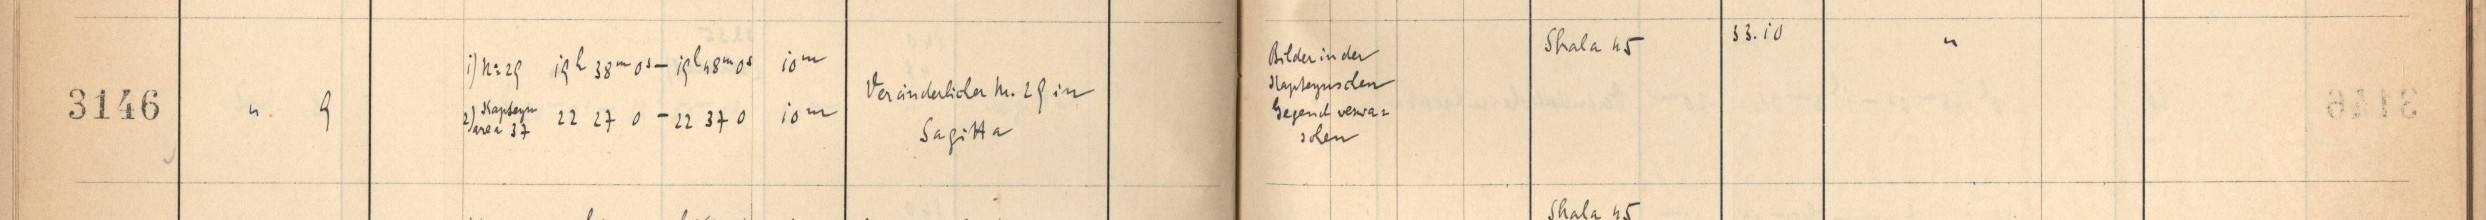 3146 " 9
1) N=29 19h 38m 0s – 19h 48m 0s 10m
2) Kapteyn area 37 22 27 0 – 22 37 0 10m
Veränderlicher N. 29 in
Sagitta
Bilder in der
Kapteynschen
Gegend verwa=
schen
Skala 45
33.10
"
Skala 45